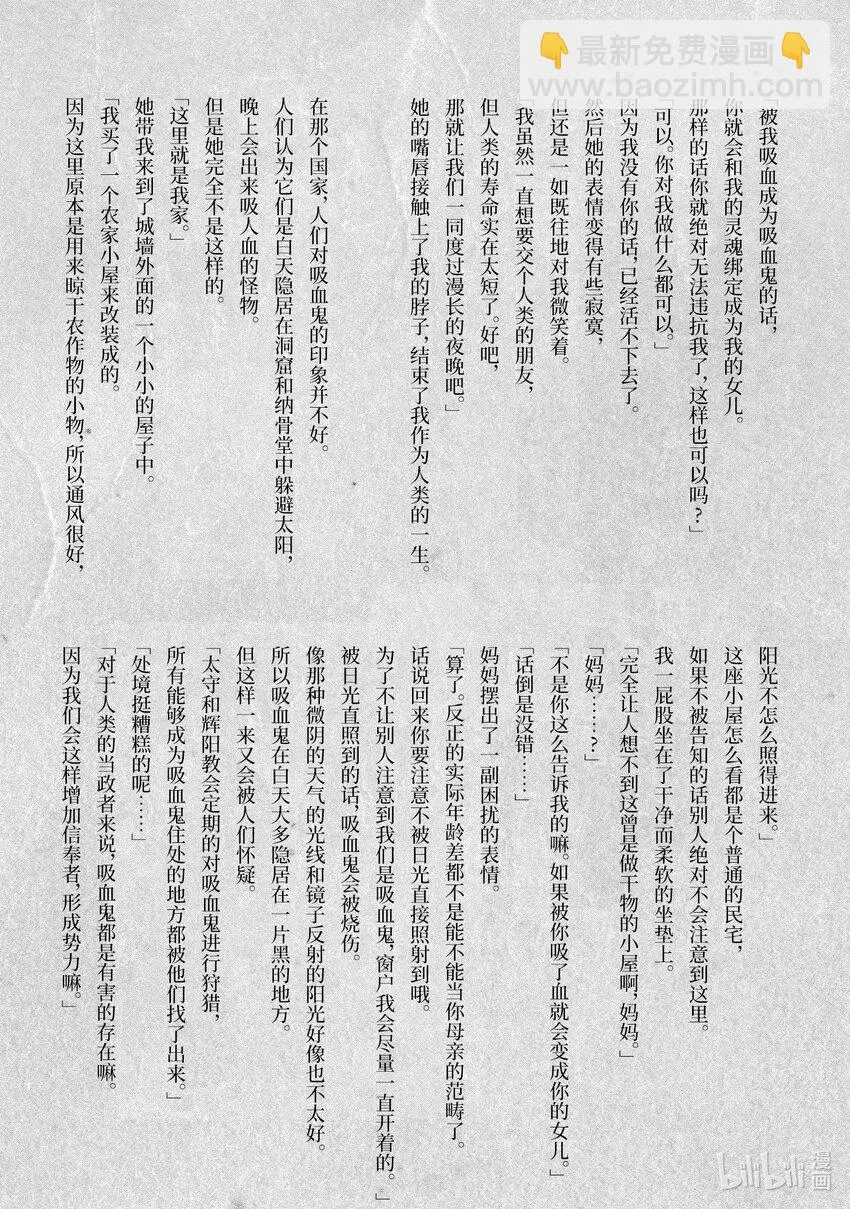 👇最新免费漫画👇
www.baozimh.com
「被我吸血成为吸血鬼的话，
你就会和我的灵魂绑定成为我的女儿。
那样的话你就绝对无法违抗我了，这样也可以吗？」
「可以。你对我做什么都可以。」
因为我没有你的话，已经活不下去了。
然后她的表情变得有些寂寞，
但还是一如既往地对我微笑着。
「我虽然一直想要交个人类的朋友，
但人类的寿命实在太短了。好吧，
那就让我们一同度过漫长的夜晚吧。」
她的嘴唇接触上了我的脖子，结束了我作为人类的一生。
在那个国家，人们对吸血鬼的印象并不好。
人们认为它们是白天隐居在洞窟和纳骨堂中躲避太阳，
晚上会出来吸人血的怪物。
但是她完全不是这样的。
「这里就是我家。」
她带我来到了城墙外面的一个小小的屋子中。
「我买了一个农家小屋来改装成的。
因为这里原本是用来晾干农作物的小物，所以通风很好，
阳光不怎么照得进来。」
这座小屋怎么看都是个普通的民宅，
如果不被告知的话别人绝对不会注意到这里。
我一屁股坐在了干净而柔软的坐垫上。
「完全让人想不到这曾是做干物的小屋啊，妈妈。」
「妈妈……？」
「不是你这么告诉我的嘛。如果被你吸了血就会变成你的女儿。」
「话倒是没错……」
妈妈摆出了一副困扰的表情。
「算了。反正的实际年龄差都不是能不能当你母亲的范畴了。
话说回来你要注意不被日光直接照射到哦。
为了不让别人注意到我们是吸血鬼，窗户我会尽量一直开着的。」
被日光直照到的话，吸血鬼会被烧伤。
像那种微阴的天气的光线和镜子反射的阳光好像也不太好。
所以吸血鬼在白天大多隐居在一片黑的地方。
但这样一来又会被人们怀疑。
「太守和辉阳教会定期的对吸血鬼进行狩猎，
所有能够成为吸血鬼住处的地方都被他们找了出来。」
「处境挺糟糕的呢……」
「对于人类的当政者来说，吸血鬼都是有害的存在嘛。
因为我们会这样增加信奉者，形成势力嘛。」
bilibili漫画